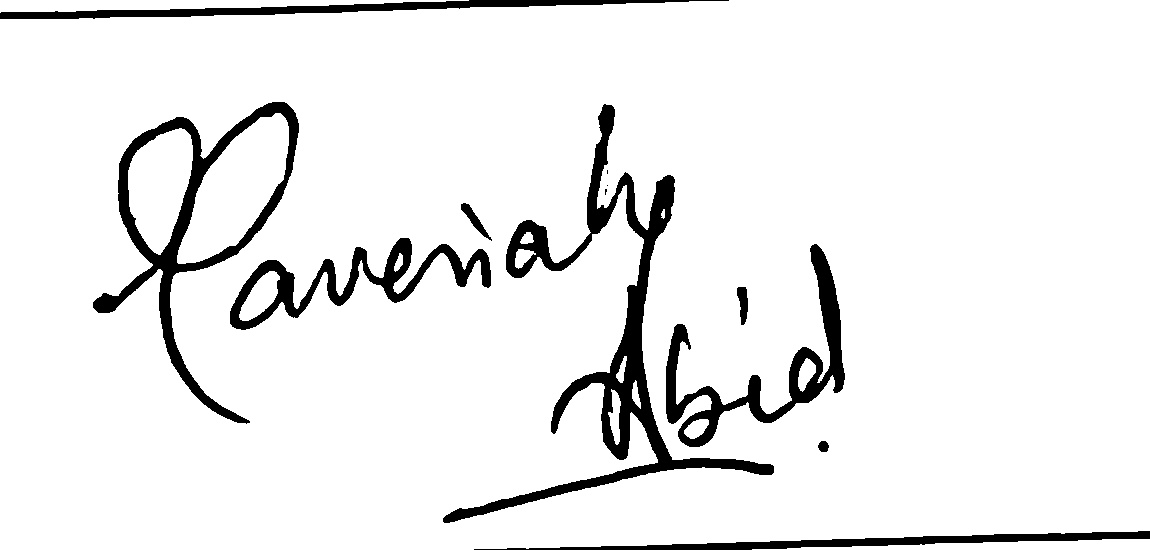 Javeriah
Abid.